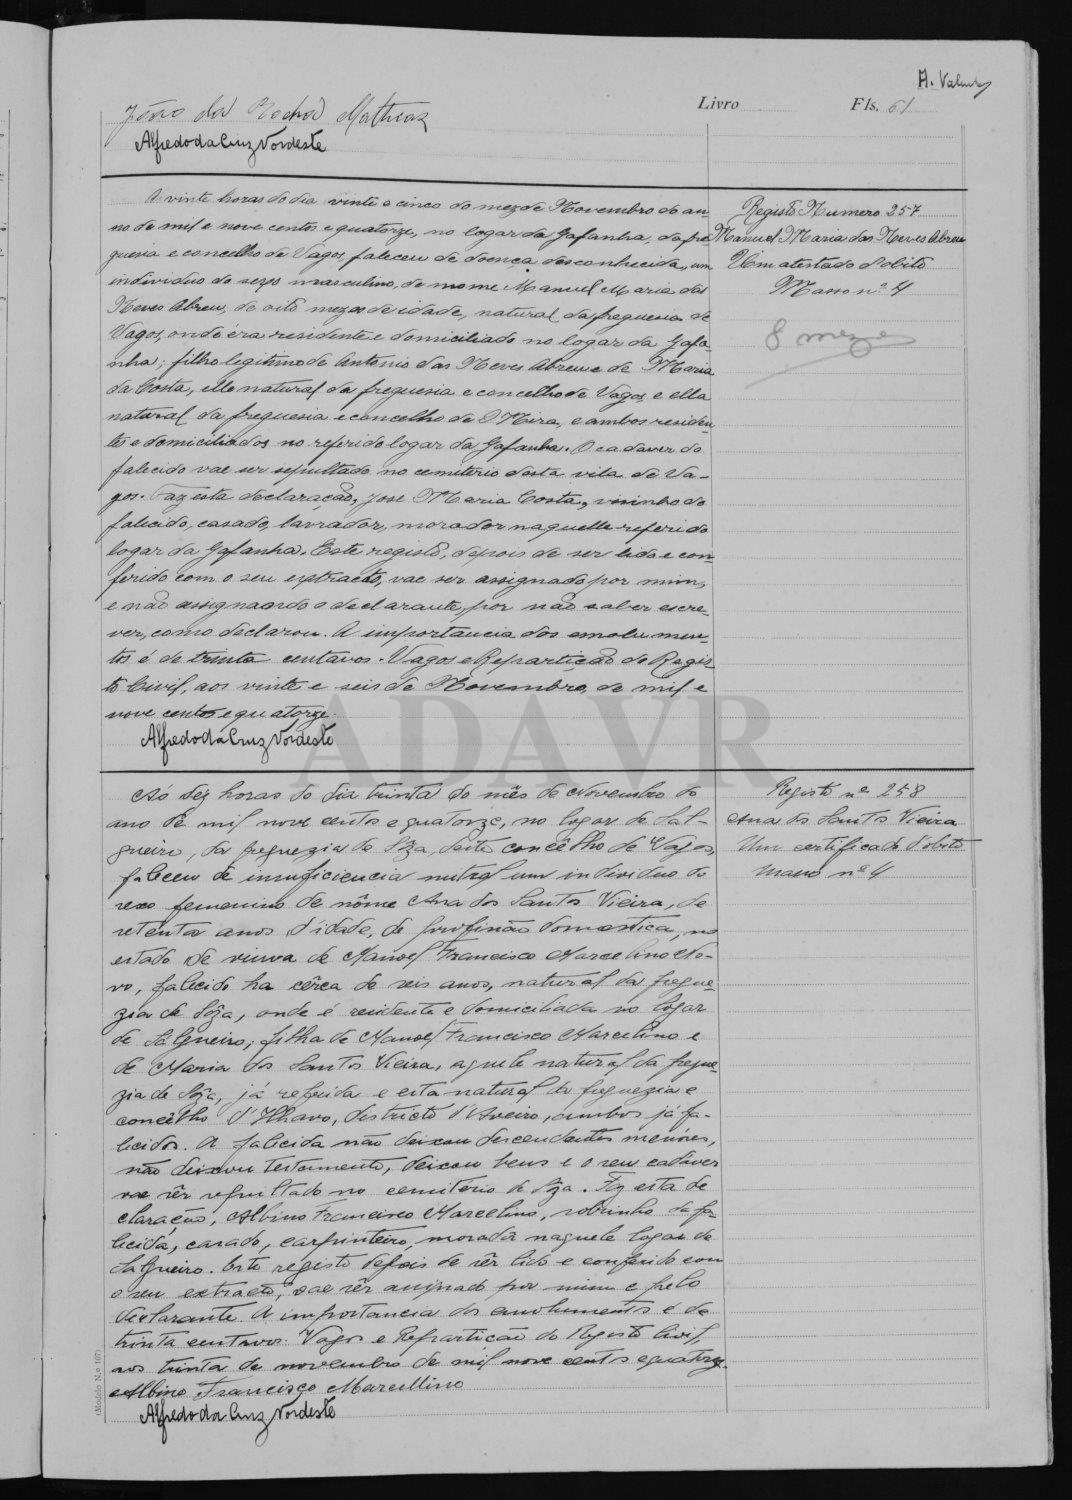 A. Valente
Livro Fls. 61
João da Rocha Mathias
Alfredo da Cruz Nordeste
Registo Numero 257
Manuel Maria das Neves Abreu
Um atestado d'obito
Masso nº 4
8 mezes
A vinte horas do dia vinte e cinco do mez de Novembro do an-
no de mil e nove centos e quatorze, no logar da Gafanha, da fre-
guesia e concelho de Vagos, faleceu de doença desconhecida, um
individuo do sexo masculino, de nome Manuel Maria das
Neves Abreu, de oito mezes de idade, natural da freguesia de
Vagos, onde éra residente e domiciliado no logar da Gafa-
nha; filho legitimo de Antonio das Neves Abreu e de Maria
da Costa, elle natural da freguesia e concelho de Vagos, e ella
natural da freguesia e concelho de Mira, e ambos residen-
tes e domiciliados no referido logar da Gafanha. O cadaver do
falecido vae ser sepultado no cemiterio desta vila de Va-
gos. Faz esta declaração, José Maria Costa, visinho do
falecido, casado, lavrador, morador naquelle referido
logar da Gafanha. Este registo, depois de ser lido e con-
ferido com o seu extracto, vae ser assignado por mim,
e não assignando o declarante, por não saber escre-
ver, como declarou. A importancia dos emolumen-
tos é de trinta centavos. Vagos e Repartição do Regis-
to Civil, aos vinte e seis de Novembro, de mil e
nove centos e quatorze.
Alfredo da Cruz Nordeste
ADAVR
Registo nº 258
Ana dos Santos Vieira
Um certificado d'obito
Masso nº 4
Ás dez horas do dia trinta do mês de Novembro do
ano de mil nove centos e quatorze, no logar de Sal-
gueiro, da freguezia de Sôza, deste concêlho de Vagos,
faleceu de insuficiencia mitral um individuo do
sexo femenino de nôme Ana dos Santos Vieira, de
setenta anos d'idade, de profissão domestica, no
estado de viuva de Manoel Francisco Marcelino No-
vo, falecido ha cêrca de seis anos, natural da fregue-
zia de Sôza, onde é residente e domiciliada no logar
de Salgueiro; filha de Manoel Francisco Marcelino e
de Maria dos Santos Vieira, aquele natural da fregue-
zia de Sôza, já referida e esta natural da freguezia e
concêlho d'Ilhavo, districto d'Aveiro, ambos já fa-
lecidos. A falecida não deixou descendentes menóres,
não deixou testamento, deixou bens e o seu cadáver
vae sêr sepultado no cemiterio de Sôza. Fez esta de
claração, Albino Francisco Marcelino, sobrinho da fa-
lecida, casado, carpinteiro, morador naquele logar de
Salgueiro. Este registo depois de sêr lido e conferido com
o seu extracto, vae sêr assignado por mim e pelo
declarante. A importancia dos emolumentos é de
trinta centavos. Vagos e Repartição do Registo Civil,
aos trinta de novembro de mil nove centos e quatorze.
Albino Francisco Marcellino
Alfredo da Cruz Nordeste
(Modelo N.º 107)